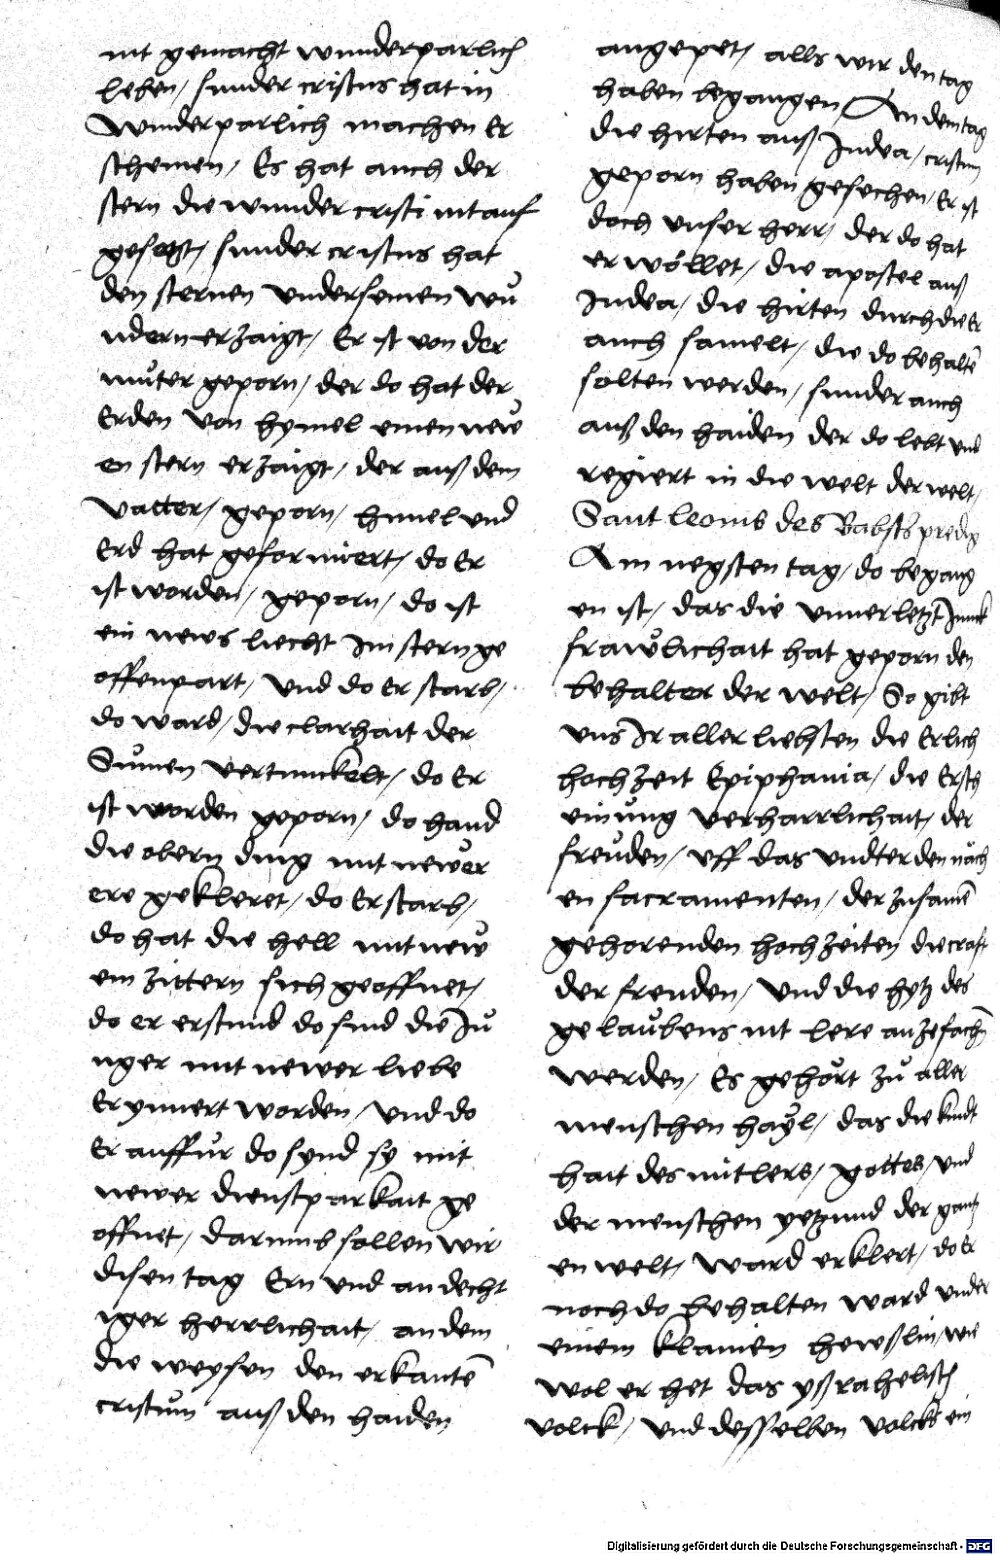 nit gemacht wunderparlich
leben/ sunder cristus hat in
Wunderparlich machen Er
scheinen/ Es hat auch der
stern die wunder cristi nit auf
gesetzt/ sunder cristus hat
den sternen vnder seinen wů
ndern erzaigt/ Er ist von der
můter geporn/ der do hat der
Erden von hymel einen new
en stern erzaigt/ der auß dem
vatter/ geporn/ himel vnd
Erd hat geformiert/ do Er
ist worden/ geporn/ do ist
ein news liecht Im stern ge
offenpart/ vnd do Er starb/
do ward/ die clarhait der
Sunnen vertunckelt/ do Er
ist worden geporn/ do hand
die obern ding mit newer
ere gekleret/ do Er starb/
do hat die hell mit new
em zittern sich geoffnet/
do er erstund do sind die Jů
nger mit newer liebe
Erynnert worden/ vnd do
Er auffůr do synd sy mit
newer dienstparkait ge
offnet/ darumb sollen wir
disen tag Ern vnd andecht
iger herrlichait/ an dem
die weysen den erkantē
cristum auß den haiden
angepet/ alls wir den tag
haben begangen/ An dem tag
die hirten auß Judea/ cristum
geporn haben gesechen/ Er ist
doch vnser herr/ der do hat
erwöllet/ die apostel auß
Judea/ die hirten durch die Er
auch samelt/ die do behaltē
solten werden/ sunder auch
auß den haiden der do lebt vnd
regiert in die welt der welt/
Sant leonis des Babsts predig
Am negsten tag/ do begang
en ist/ das die vnuerletzt Junck
frawlichait hat geporn den
behalter der welt/ So gibt
vns Ir aller liebsten die Erlich
hochzeit Epiphania/ die Ersch
einůng verharrlichait/ der
freuden/ vff das vndter den näch
en sacramenten/ der zusamē
gehorenden hochzeiten die craft
der freuden/ vnd die hytz des
gelaubens nit lere anzefachē
werden/ Es gehört zů aller
menschen hayl/ das die kindt
hait des mitlers/ gottes/ vnd
der menschen yetzund der gantz
en welt/ ward erklert/ do Er
noch do behalten ward vnder
einem klainen hewßlin/ wie
wol er het das yßrahelisch
volck/ vnd desselben volcks ein
Digitalisierung gefördert durch die Deutsche Forschungsgemeinschaft - DFG